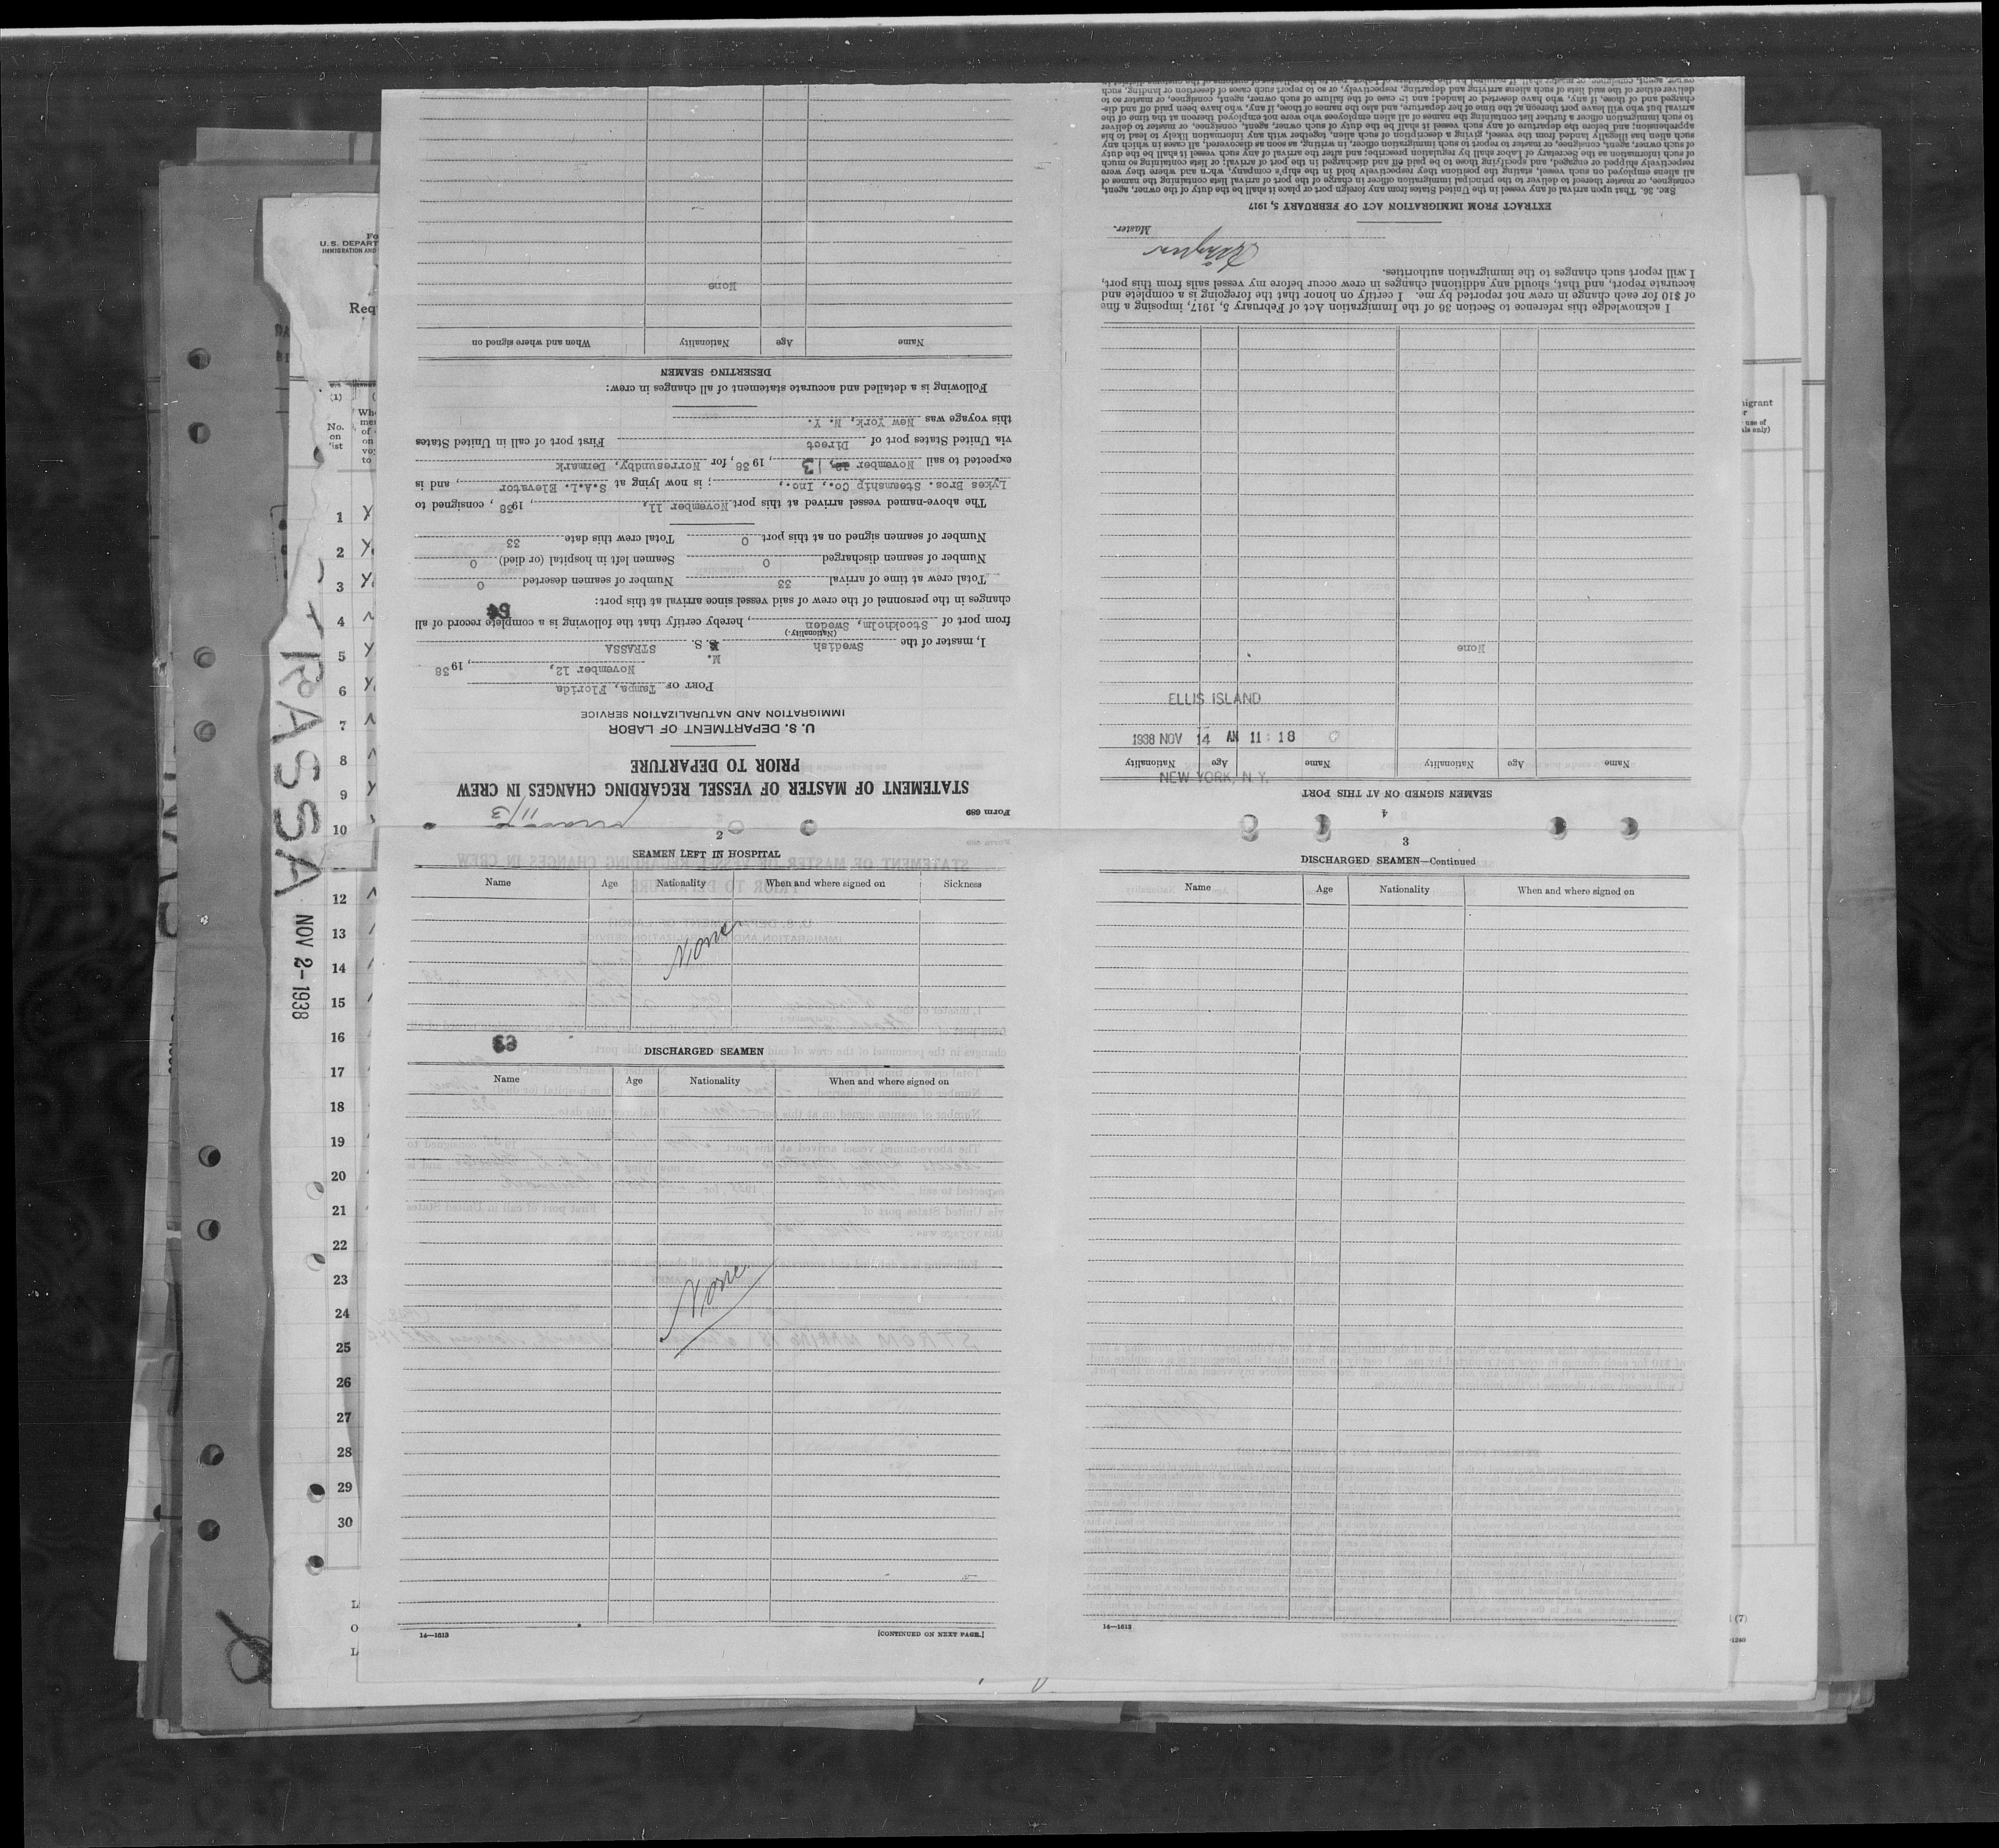 Form 689
STATEMENT OF MASTER OF VESSEL REGARDING CHANGES IN CREW
PRIOR TO DEPARTURE
U. S. DEPARTMENT OF LABOR
IMMIGRATION AND NATURALIZATION SERVICE
PORT OF Tampa, Florida
November 12, , 1938
M.
I, master of the Swedish S. S. STRASSA
(Nationality.)
from port of Stockholm, Sweden , hereby certify that the following is a complete record of all
changes in the personnel of the crew of said vessel since arrival at this port:
64
Total crew at time of arrival 33 Number of seamen deserted 0
Number of seamen discharged 0 Seamen left in hospital (or died) 0
Number of seamen signed on at this port 0 Total crew this date 33
The above-named vessel arrived at this port November 11, , 1938 , consigned to
Lykes Bros. Steamship Co., Inc., ; is now lying at S.A.L. Elevator , and is
expected to sail November 12, 13 , 1938 , for Norresundby, Denmark
via United States port of Direct First port of call in United States
this voyage was New York, N. Y.
Following is a detailed and accurate statement of all changes in crew:
DESERTING SEAMEN
Name Age Nationality When and where signed on
None
4
SEAMEN SIGNED ON AT THIS PORT
Name Age Nationality Name Age Nationality
None
ELLIS ISLAND
1938 NOV 14 AM 11:18
NEW YORK, N.Y.
I acknowledge this reference to Section 36 of the Immigration Act of February 5, 1917, imposing a fine
of $10 for each change in crew not reported by me. I certify on honor that the foregoing is a complete and
accurate report, and that, should any additional changes in crew occur before my vessel sails from this port,
I will report such changes to the immigration authorities.
Master.
EXTRACT FROM IMMIGRATION ACT OF FEBRUARY 5, 1917
SEC. 36. That upon arrival of any vessel in the United States from any foreign port or place it shall be the duty of the owner, agent,
consignee, or master thereof to deliver to the principal immigration officer in charge of the port of arrival lists containing the names of
all aliens employed on such vessel, stating the positions they respectively hold in the ship's company, when and where they were
respectively shipped or engaged, and specifying those to be paid off and discharged in the port of arrival; or lists containing so much
of such information as the Secretary of Labor shall by regulation prescribe; and after the arrival of any such vessel it shall be the duty
of such owner, agent, consignee, or master to report to such immigration officer, in writing, as soon as discovered, all cases in which any
such alien has illegally landed from the vessel, giving a description of such alien, together with any information likely to lead to his
apprehension; and before the departure of any such vessel it shall be the duty of such owner, agent, consignee, or master to deliver
to such immigration officer a further list containing the names of all alien employees who were not employed thereon at the time of the
arrival but who will leave port thereon at the time of her departure, and also the names of those, if any, who have been paid off and dis-
charged and of those, if any, who have deserted or landed; and in case of the failure of such owner, agent, consignee, or master so to
deliver either of the said lists of such aliens arriving and departing, respectively, or so to report such cases of desertion or landing, such
2
SEAMEN LEFT IN HOSPITAL
Name Age Nationality When and where signed on Sickness
None
63
DISCHARGED SEAMEN
Name Age Nationality When and where signed on
None
14—1613 [CONTINUED ON NEXT PAGE.]
3
DISCHARGED SEAMEN—Continued
Name Age Nationality When and where signed on
14—1613
U.S. DEPART
IMMIGRATION AND
Req
(1)
No.
on
list
1
2
3
4
5
6
7
8
9
10
12
13
14
15
16
17
18
19
20
21
22
23
24
25
26
27
28
29
30
STRASSA
NOV 2-1938